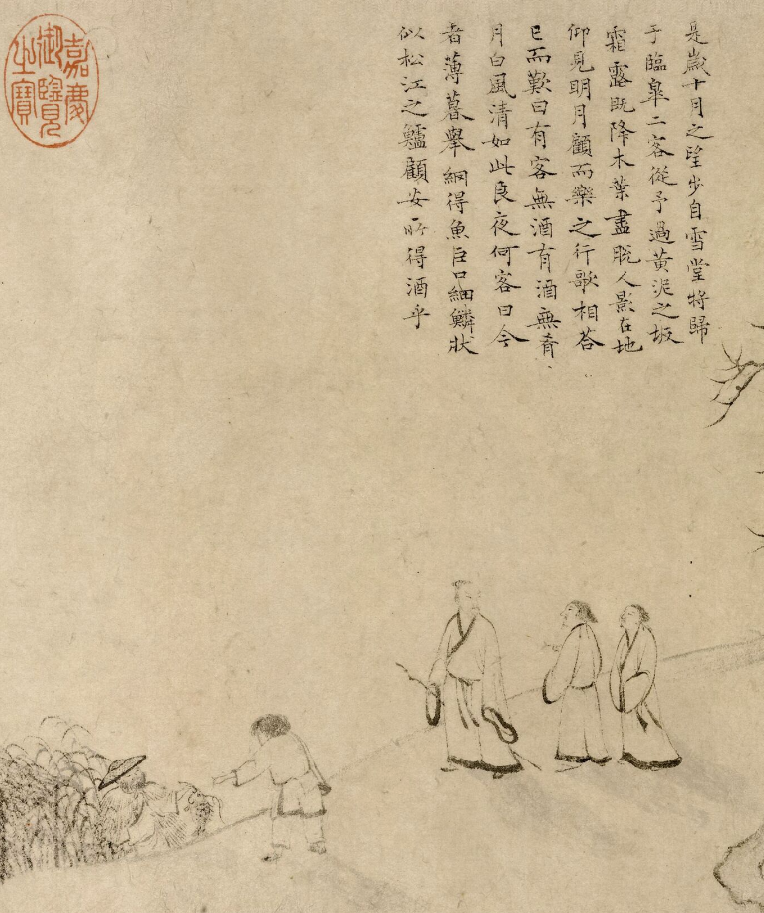 是歲十月之望步自雪堂將歸
于臨皐二客從予過黃泥之坂
霜露既降木葉盡脫人影在地
仰見明月顧而樂之行歌相荅
已而歎曰有客無酒有酒無肴
月白風清如此良夜何客曰今
者薄暮舉網得魚巨口細鱗狀
似松江之鱸顧安所得酒乎
嘉慶御覽之寶